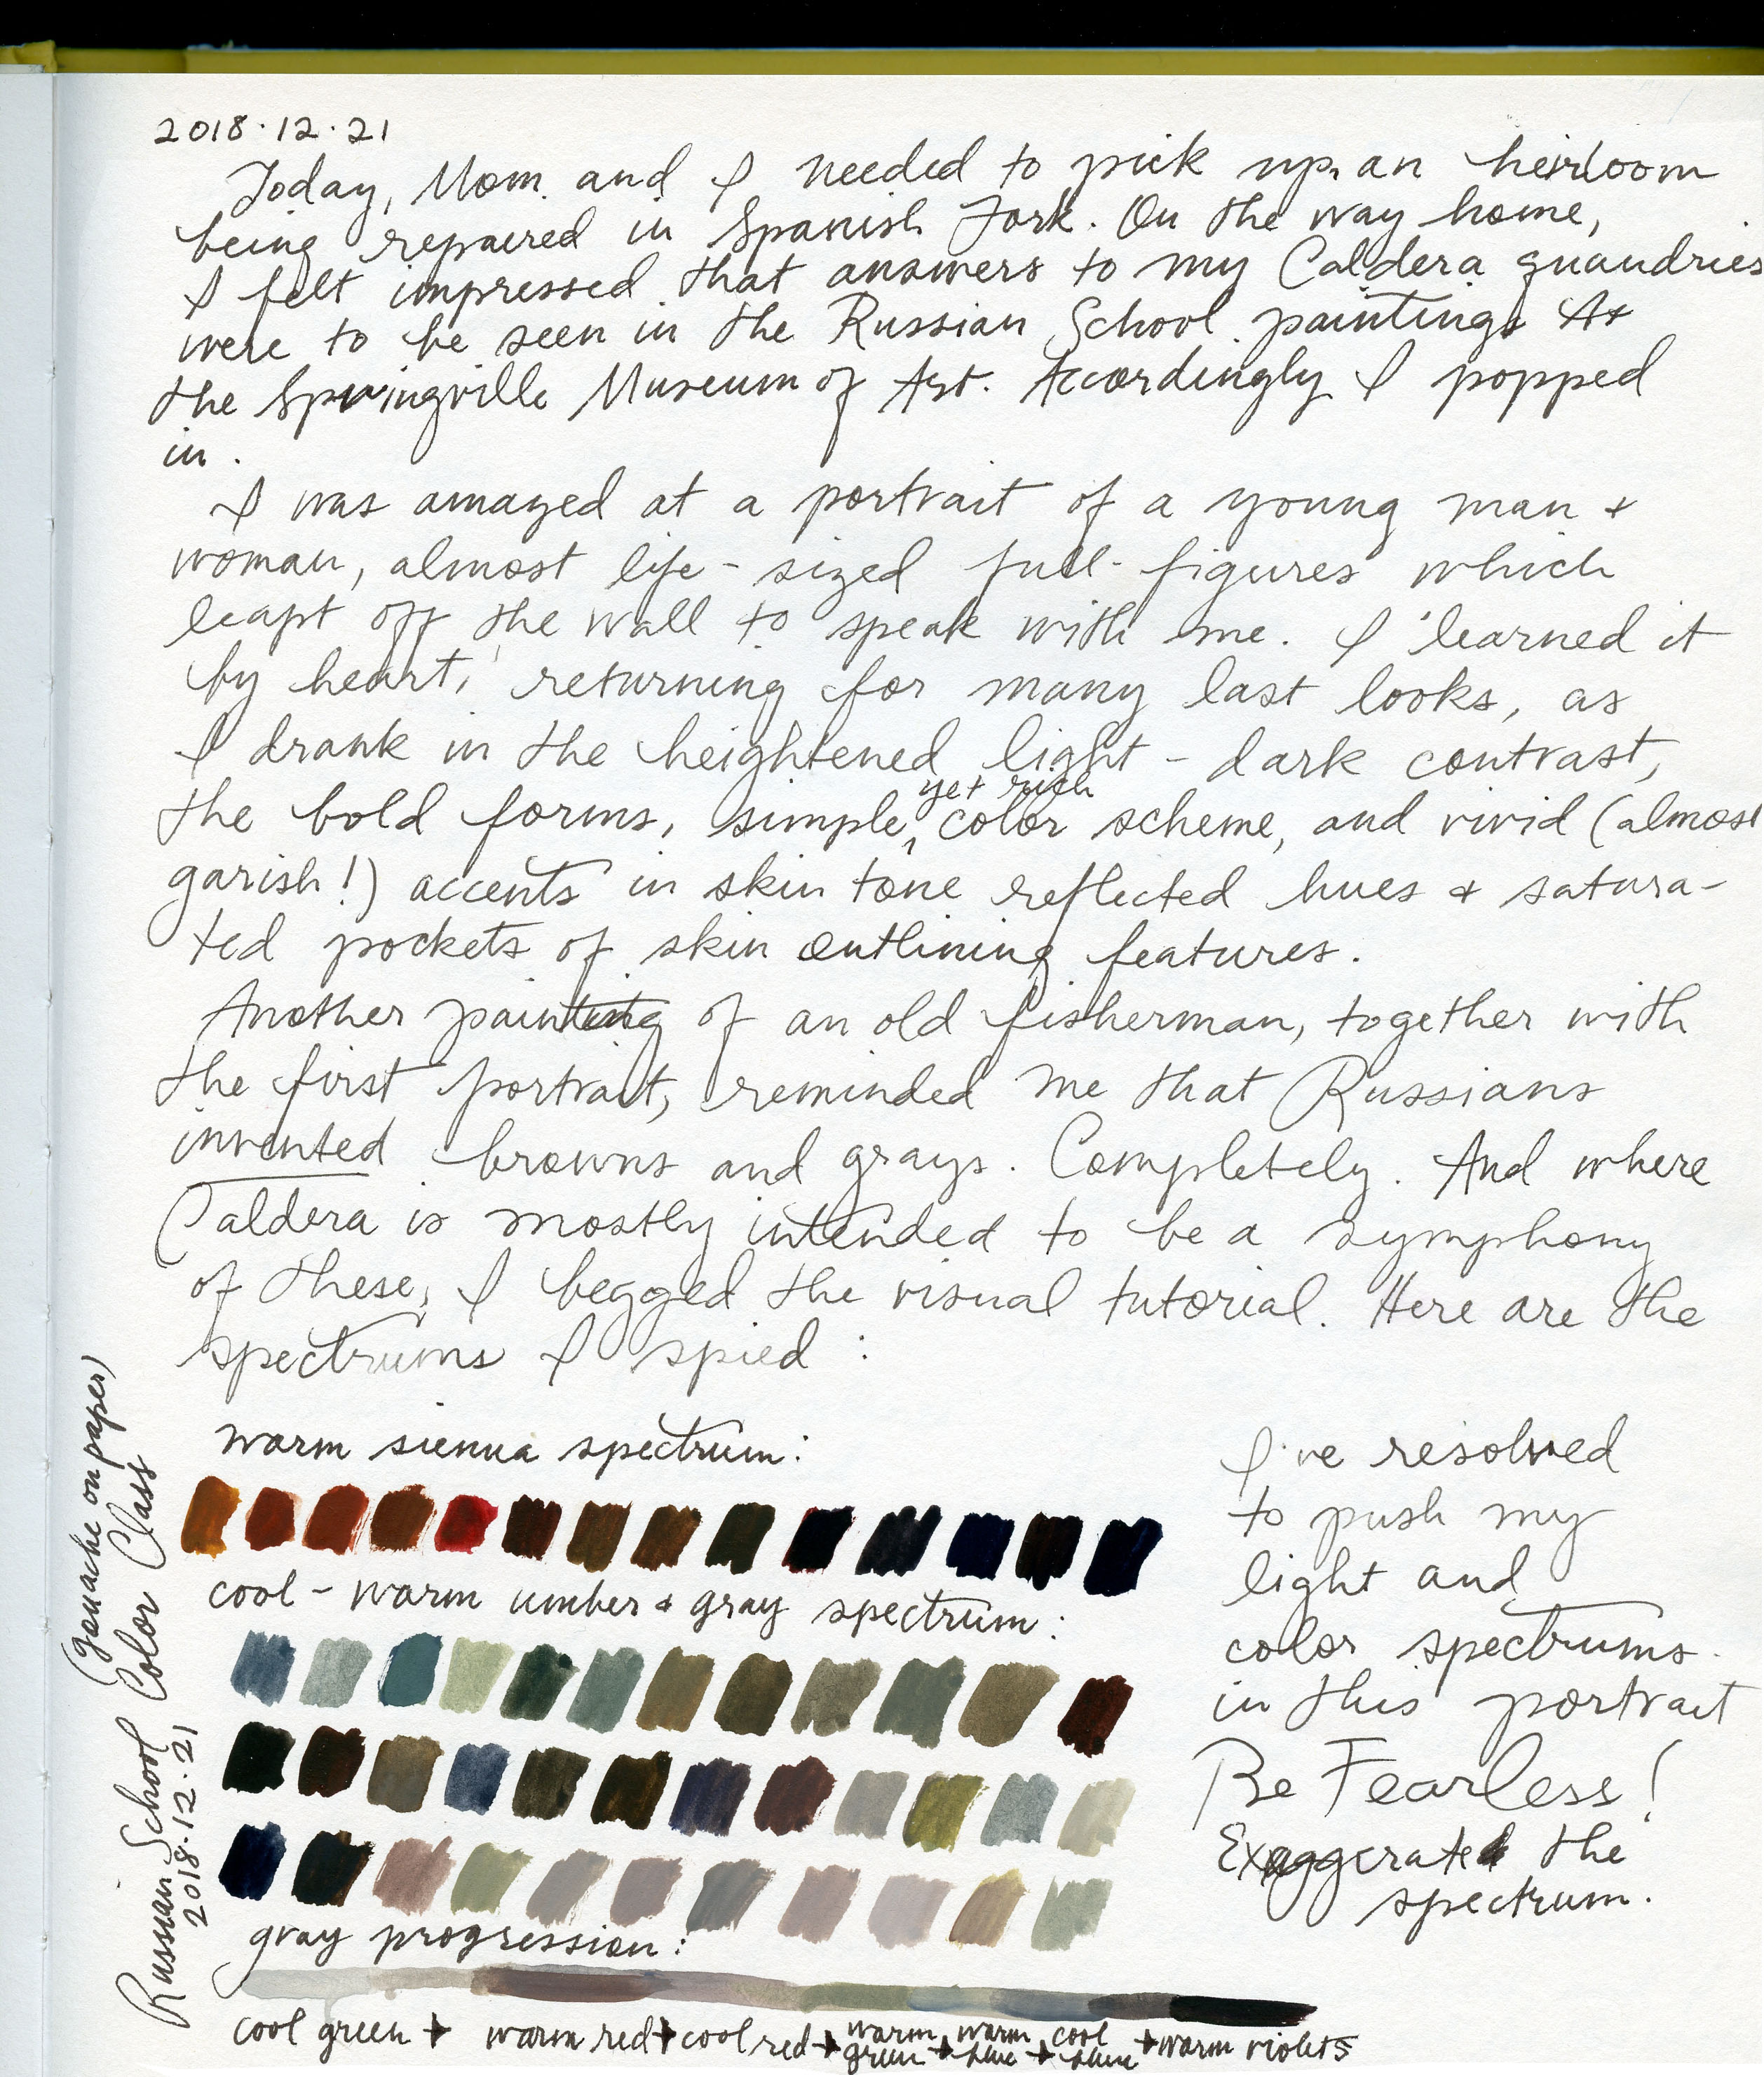 2018.12.21
Today, Mom and I needed to pick up an heirloom
being repaired in Spanish Fork. On the way home,
I felt impressed that answers to my Caldera quandries
were to be seen in the Russian School paintings At
the Springville Museum of Art. Accordingly I popped
in.
I was amazed at a portrait of a young man +
woman, almost life-sized full-figures which
leapt off the wall to speak with me. I 'learned it
by heart,' returning for many last looks, as
I drank in the heightened light-dark contrast,
the bold forms, simple, yet rich color scheme, and vivid (almost
garish!) accents in skin tone reflected hues + satura-
ted pockets of skin outlining features.
Another painting of an old fisherman, together with
the first portrait, reminded me that Russians
invented browns and grays. Completely. And where
Caldera is mostly intended to be a symphony
of these, I begged the visual tutorial. Here are the
spectrums I spied:
warm sienna spectrum:
cool-warm umber + gray spectrum:
gray progression:
cool green → warm red → cool red → warm green → warm blue → cool blue → warm violets
I've resolved
to push my
light and
color spectrums
in this portrait
Be Fearless!
Exaggerate the
spectrum.
Russian School Color Class
2018.12.21
(gouache on paper)